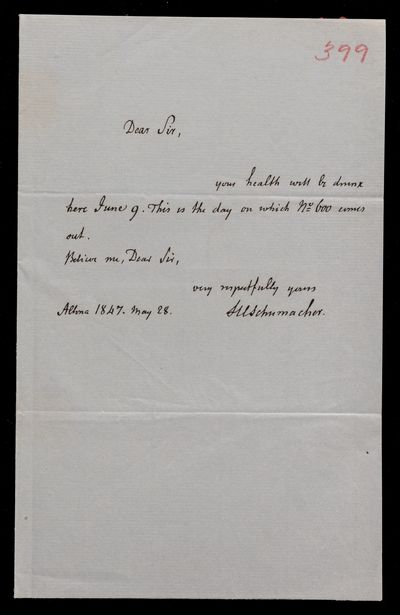 399
Dear Sir,
your health will be drunk
here June 9. This is the day on which No 600 comes
out.
Believe me, Dear Sir,
very respectfully yours
Altona 1847. May 28. HCSchumacher.